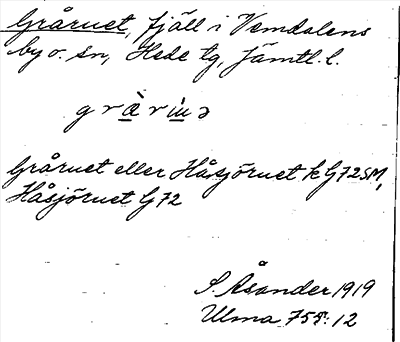 Gråruet, fjäll i Vemdalens
by o. sn, Hede tg, Jämtl. l.
Gråruet eller Håsjöruet k G72SM,
Håsjöruet G72
S. Åsander 1919
Ulma 755: 12